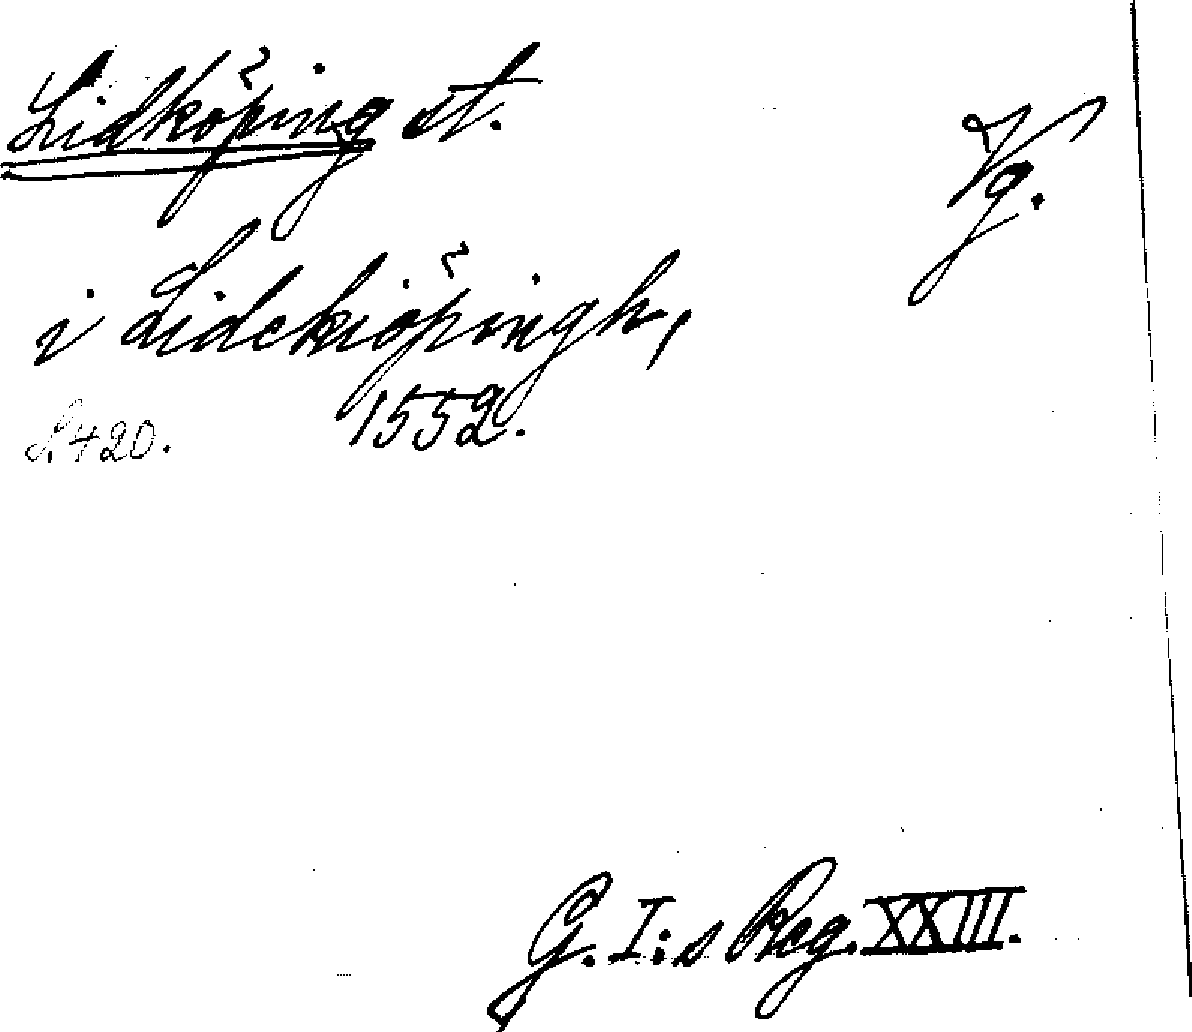 Lidköping st.
Vg.
i Lidekiöpingh,
1552.
S. 420.
G. I:s Reg. XXIII.